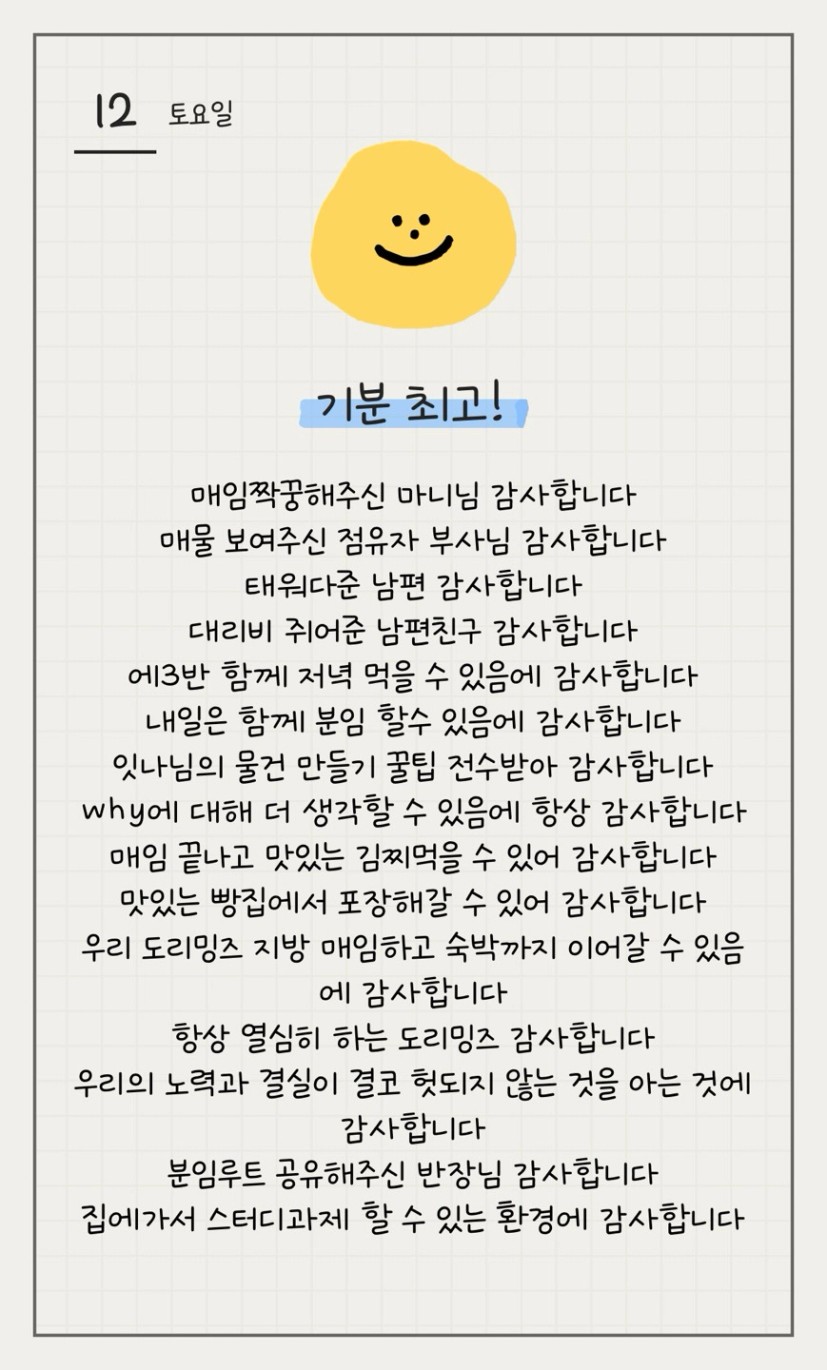 12 토요일
기분 최고!
매임짝꿍해주신 마니님 감사합니다
매물 보여주신 점유자 부사님 감사합니다
태워다준 남편 감사합니다
대리비 쥐어준 남편친구 감사합니다
에3반 함께 저녁 먹을 수 있음에 감사합니다
내일은 함께 분임 할수 있음에 감사합니다
잇나님의 물건 만들기 꿀팁 전수받아 감사합니다
why에 대해 더 생각할 수 있음에 항상 감사합니다
매임 끝나고 맛있는 김찌먹을 수 있어 감사합니다
맛있는 빵집에서 포장해갈 수 있어 감사합니다
우리 도리밍즈 지방 매임하고 숙박까지 이어갈 수 있음
에 감사합니다
항상 열심히 하는 도리밍즈 감사합니다
우리의 노력과 결실이 결코 헛되지 않는 것을 아는 것에
감사합니다
분임루트 공유해주신 반장님 감사합니다
집에가서 스터디과제 할 수 있는 환경에 감사합니다